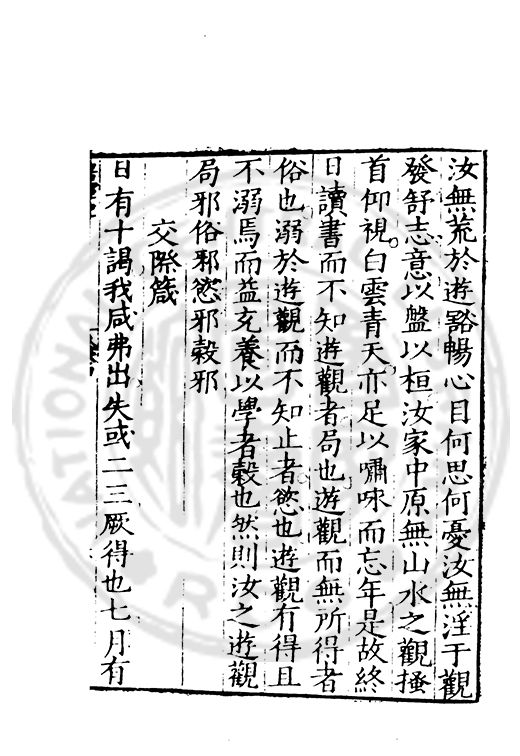 汝無荒於遊豁暢心目何思何憂汝無淫于觀
發舒志意以盤以桓汝家中原無山水之觀搔
首仰視白雲青天亦足以嘯咏而忘年是故終
日讀書而不知遊觀者局也遊觀而無所得者
俗也溺於遊觀而不知止者慾也遊觀有得且
不溺焉而益充養以學者穀也然則汝之遊觀
局邪俗邪慾邪穀邪
交際箴
日有十謁我咸弗出失或二三厥得也七月有